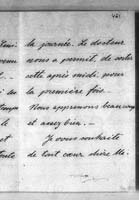 la journée. Le docteur
nous a permis, de sortir
cette après midi, pour
la première fois.
Nous apprenons beaucoup
et assez bien.
Je vous souhaite
de tout cœur chère